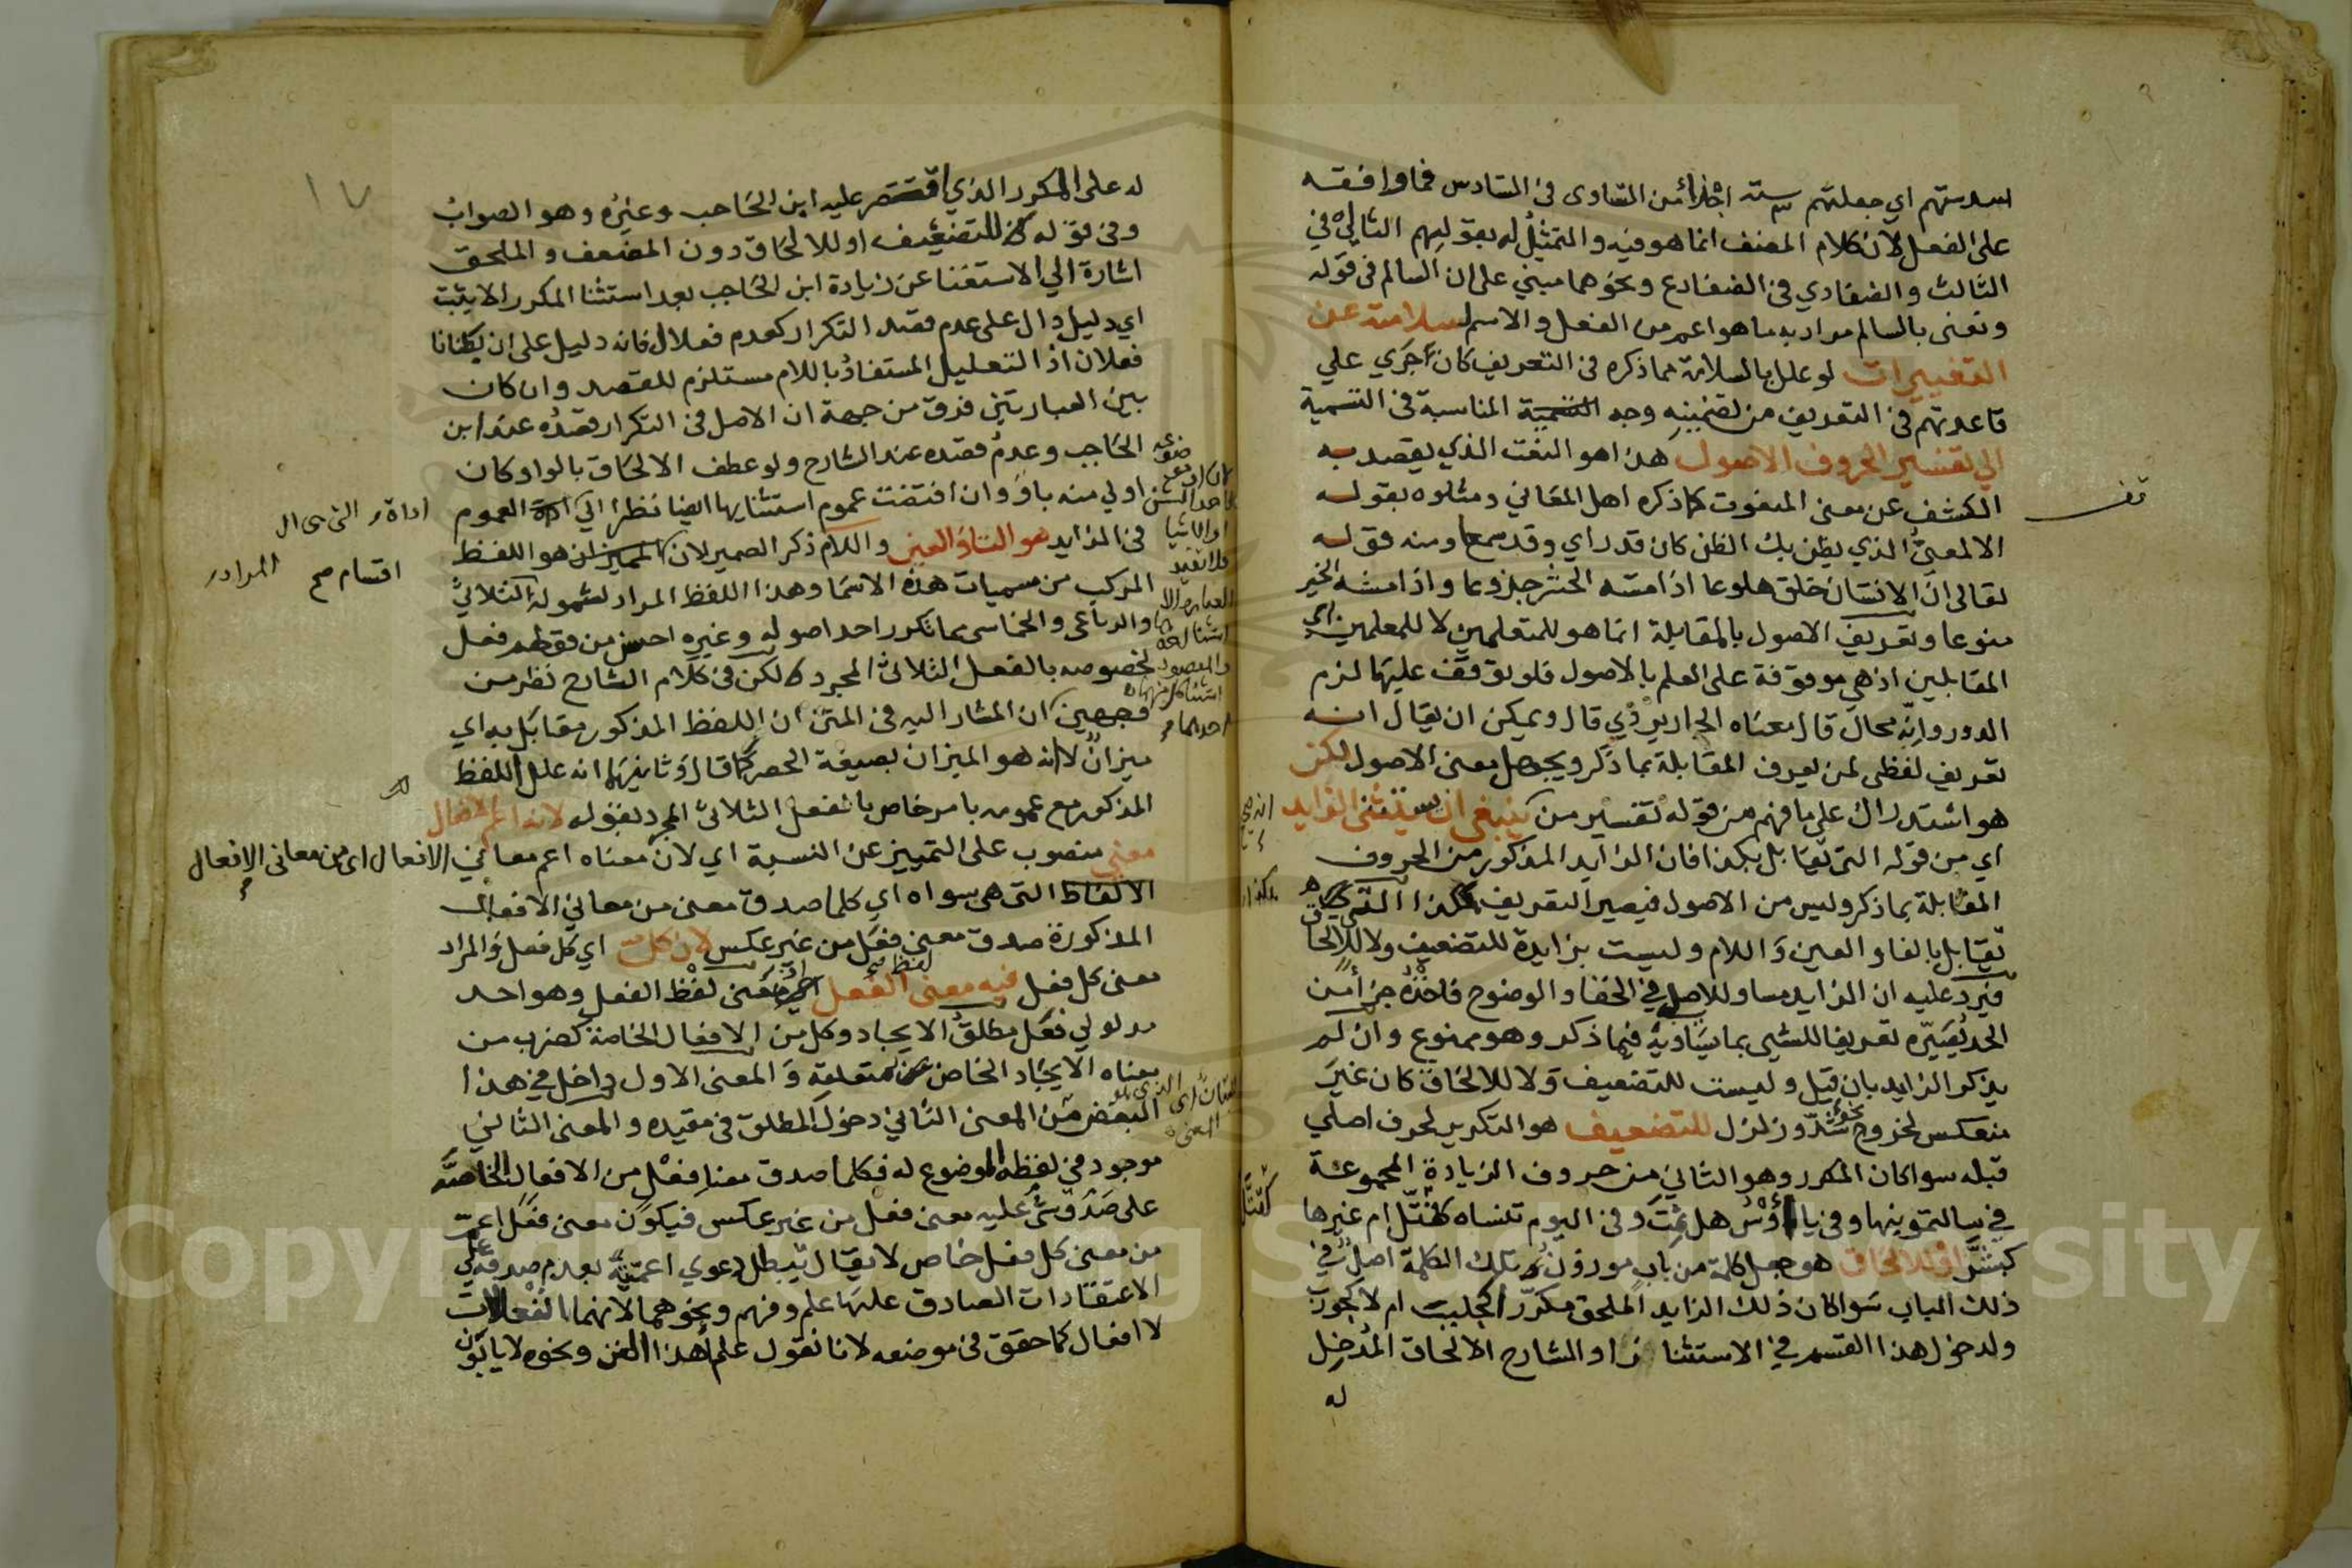 اسدستهم اي جعلتهم ستة اجزاء من التساوى فى السادس فما وافقه
على الفعل لان كلام المصنف انما هو فيه والتمثيل له بقولهم الثالي في
الثالث والضفادي فى الضفادع ونحوهما مبني على ان السالم فى قوله
ونعنى بالسالم مراد به ما هو اعم من الفعل والاسم لسلامته عن
التغييرات لو علل بالسلامة مما ذكره فى التعريف كان اجرى علي
قاعدتهم فى التعريف من تضمينه وجه المناسبة فى التسمية
الي تفسير الحروف الاصول هذا هو النعت الذي يقصد به
الكشف عن معنى المنعوت كما ذكره اهل المعاني ومثلوه بقوله
الالمعيُّ الذي يظن بك الظن كان قد راي وقد سمعا ومنه قوله
تعالى ان الانسان خلق هلوعا اذا مسه الشر جزوعا واذا مسه الخير
منوعا وتعريف الاصول بالمقابلة انما هو للمتعلمين لا للمعلمين اي
المقابلين اذ هي موقوفة على العلم بالاصول فلو توقف عليها لزم
الدور وانه محال قال معناه الجاربردي قال ويمكن ان يقال انه
تعريف لفظى لمن يعرف المقابلة بما ذكر ويجهل معنى الاصول لكن
هو استدراك على ما فهم من قوله تفسير من ينبغي ان يستثنى الزايد
اي من قوله التى تقابل بكذا فان الزايد المذكور من الحروف
المقابلة بما ذكر وليس من الاصول فيصير التعريف هكذا التى
تقابل بالفا والعين واللام وليست بزايدة للتضعيف ولا للالحاق
فيرد عليه ان الزايد مساو للاصل في الخفا والوضوح فاخذه جزأ من
الحد يُصَيِّره تعريفا للشيى بما يساويه فيما ذكر وهو ممنوع وان لم
يذكر الزايد بان قيل وليست للتضعيف ولا للالحاق كان غيرَ
منعكس لخروج نحو شدّ وزلزل للتضعيف هو التكرير لحرف اصلي
قبله سوا كان المكرر وهو الثاني من حروف الزيادة المجموعة
في سالتمونيها وفى يا أوس هل نمت وفى اليوم تنساه كقتّل ام غيرها
كبشَّر او للالحاق هو جعل كلمة من باب موزون تلك الكلمة اصل في
ذلك الباب سوا كان ذلك الزايد الملحق مكررا كجلبب ام لا كجورب
ولدخول هذا القسم في الاستثنا زاد الشارح الالحاق المدخل
له
له على المكرر الذي اقتصر عليه ابن الحاجب وغيره وهو الصواب
وفى قوله للتضعيف او للالحاق دون المضعف والملحق
اشارة الي الاستغنا عن زيادة ابن الحاجب بعد استثنا المكرر الا بثبت
اي دليل دال على عدم قصد التكرار كعدم فعلال فانه دليل على ان بطنانا
فعلان اذ التعليل المستفاد باللام مستلزم للقصد وان كان
بين العبارتين فرق من جهة ان الاصل فى التكرار قصده عند ابن
الحاجب وعدم قصده عند الشارح ولو عطف الالحاق بالواو كان
اولي منه باو وان اقتضت عموم استثنايها ايضا نظرا الي العموم
فى الزايد هو الفا والعين واللام ذكر الضمير لان الميزان هو اللفظ
المركب من مسميات هذه الاسما وهذا اللفظ المراد لشموله الثلاثي
والرباعى والخماسى بما تكرر احد اصوله وغيره احسن من قولهم فعل
لخصوصه بالفعل الثلاثي المجرد لكن فى كلام الشارح نظر من
وجهين ان المشار اليه فى المتن ان اللفظ المذكور مقابَل به اي
ميزان لا انه هو الميزان بصيغة الحصر كما قال وثانيهما انه علل اللفظ
المذكور مع عمومه بامر خاص بالفعل الثلاثي المجرد بقوله لانه اعم الافعال
معنى منصوب على التمييز عن النسبة اي لان معناه اعم معاني الافعال اى من معانى الافعال
الالفاظ التى هى سواه اي كلما صدق معنى من معاني الافعال
المذكورة صدق معنى فعَل من غير عكس لان كلا اي كل فعل والمراد
معنى كل فعل فيه معنى الفعل معنى لفظ الفعل وهو احد
مدلولي فعَل مطلق الايجاد وكل من الافعال الخاصة كضرب من
معناه الايجاد الخاص متعلقه والمعنى الاول داخل في هذا
البعض من المعنى الثاني دخول المطلق فى مقيده والمعنى الثاني
موجود فى لفظه الموضوع له فكلما صدق معنا فعل من الافعال الخاصة
على شى صدق عليه معنى فعل من غير عكس فيكون معنى فعَل اعم
من معنى كل فعل خاص لا يقال تبطل دعوي اعميته بعدم صدقه على
الاعتقادات الصادق عليها علم وفهم ونحوهما لانهما انفعالات
لا افعال كما حقق فى موضعه لانا نقول علم هذا الفن ونحوه لا يابون